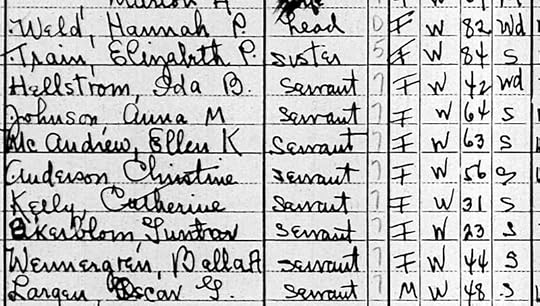 Marion A
Weld, Hannah P. head 0 F W 82 Wd
Train, Elizabeth P. sister 5 F W 84 S
Hellstrom, Ida B. servant 7 F W 42 Wd
Johnson Anna M servant 7 F W 64 S
McAndrew, Ellen K servant 7 F W 63 S
Anderson Christine servant 7 F W 56 S
Kelly, Catherine servant 7 F W 31 S
Akerblom, servant 7 F W 23 S
Wennergren, servant 7 F W 44 S
Largen, Oscar G. servant 7 M W 48 S